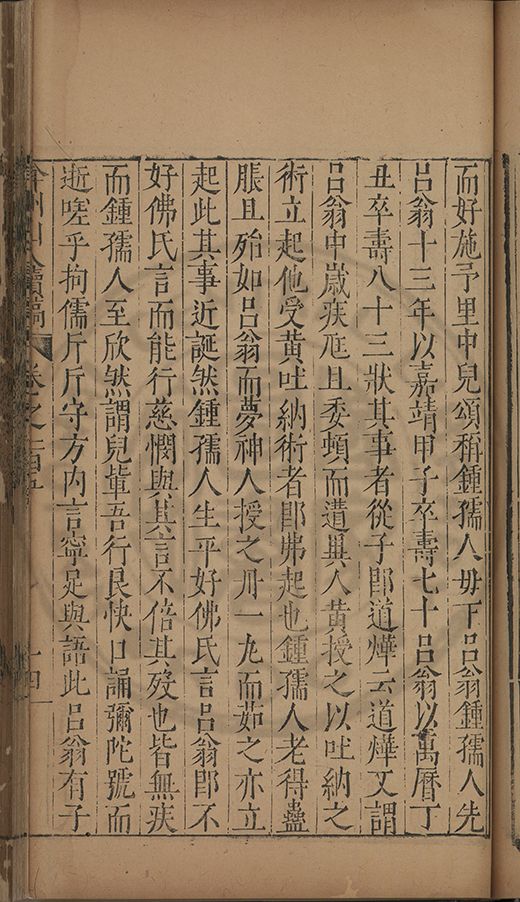 而好施予里中兒頌稱鍾孺人毋下呂翁鍾孺人先
呂翁十三年以嘉靖甲子卒壽七十呂翁以萬曆丁
丑卒壽八十三狀其事者從子郎道燁云道燁文謂
呂翁中嵗疾尫且委頓而遣異人黃授之以吐納之
術立起他受黃吐納術者卽弗起也鍾孺人老得蠱
脹且殆如呂翁而夢神人授之丹一丸而茹之亦立
起此其事近誕然鍾孺人生平好佛氏言呂翁卽不
好佛氏言而能行慈憫與其言不倍其歿也皆無疾
而鍾孺人至欣然謂兒輩吾行良快口誦彌陀號而
逝嗟乎拘儒斤斤守方內言寧足與語此呂翁有子
弇州山人續稿 卷之一百
十四